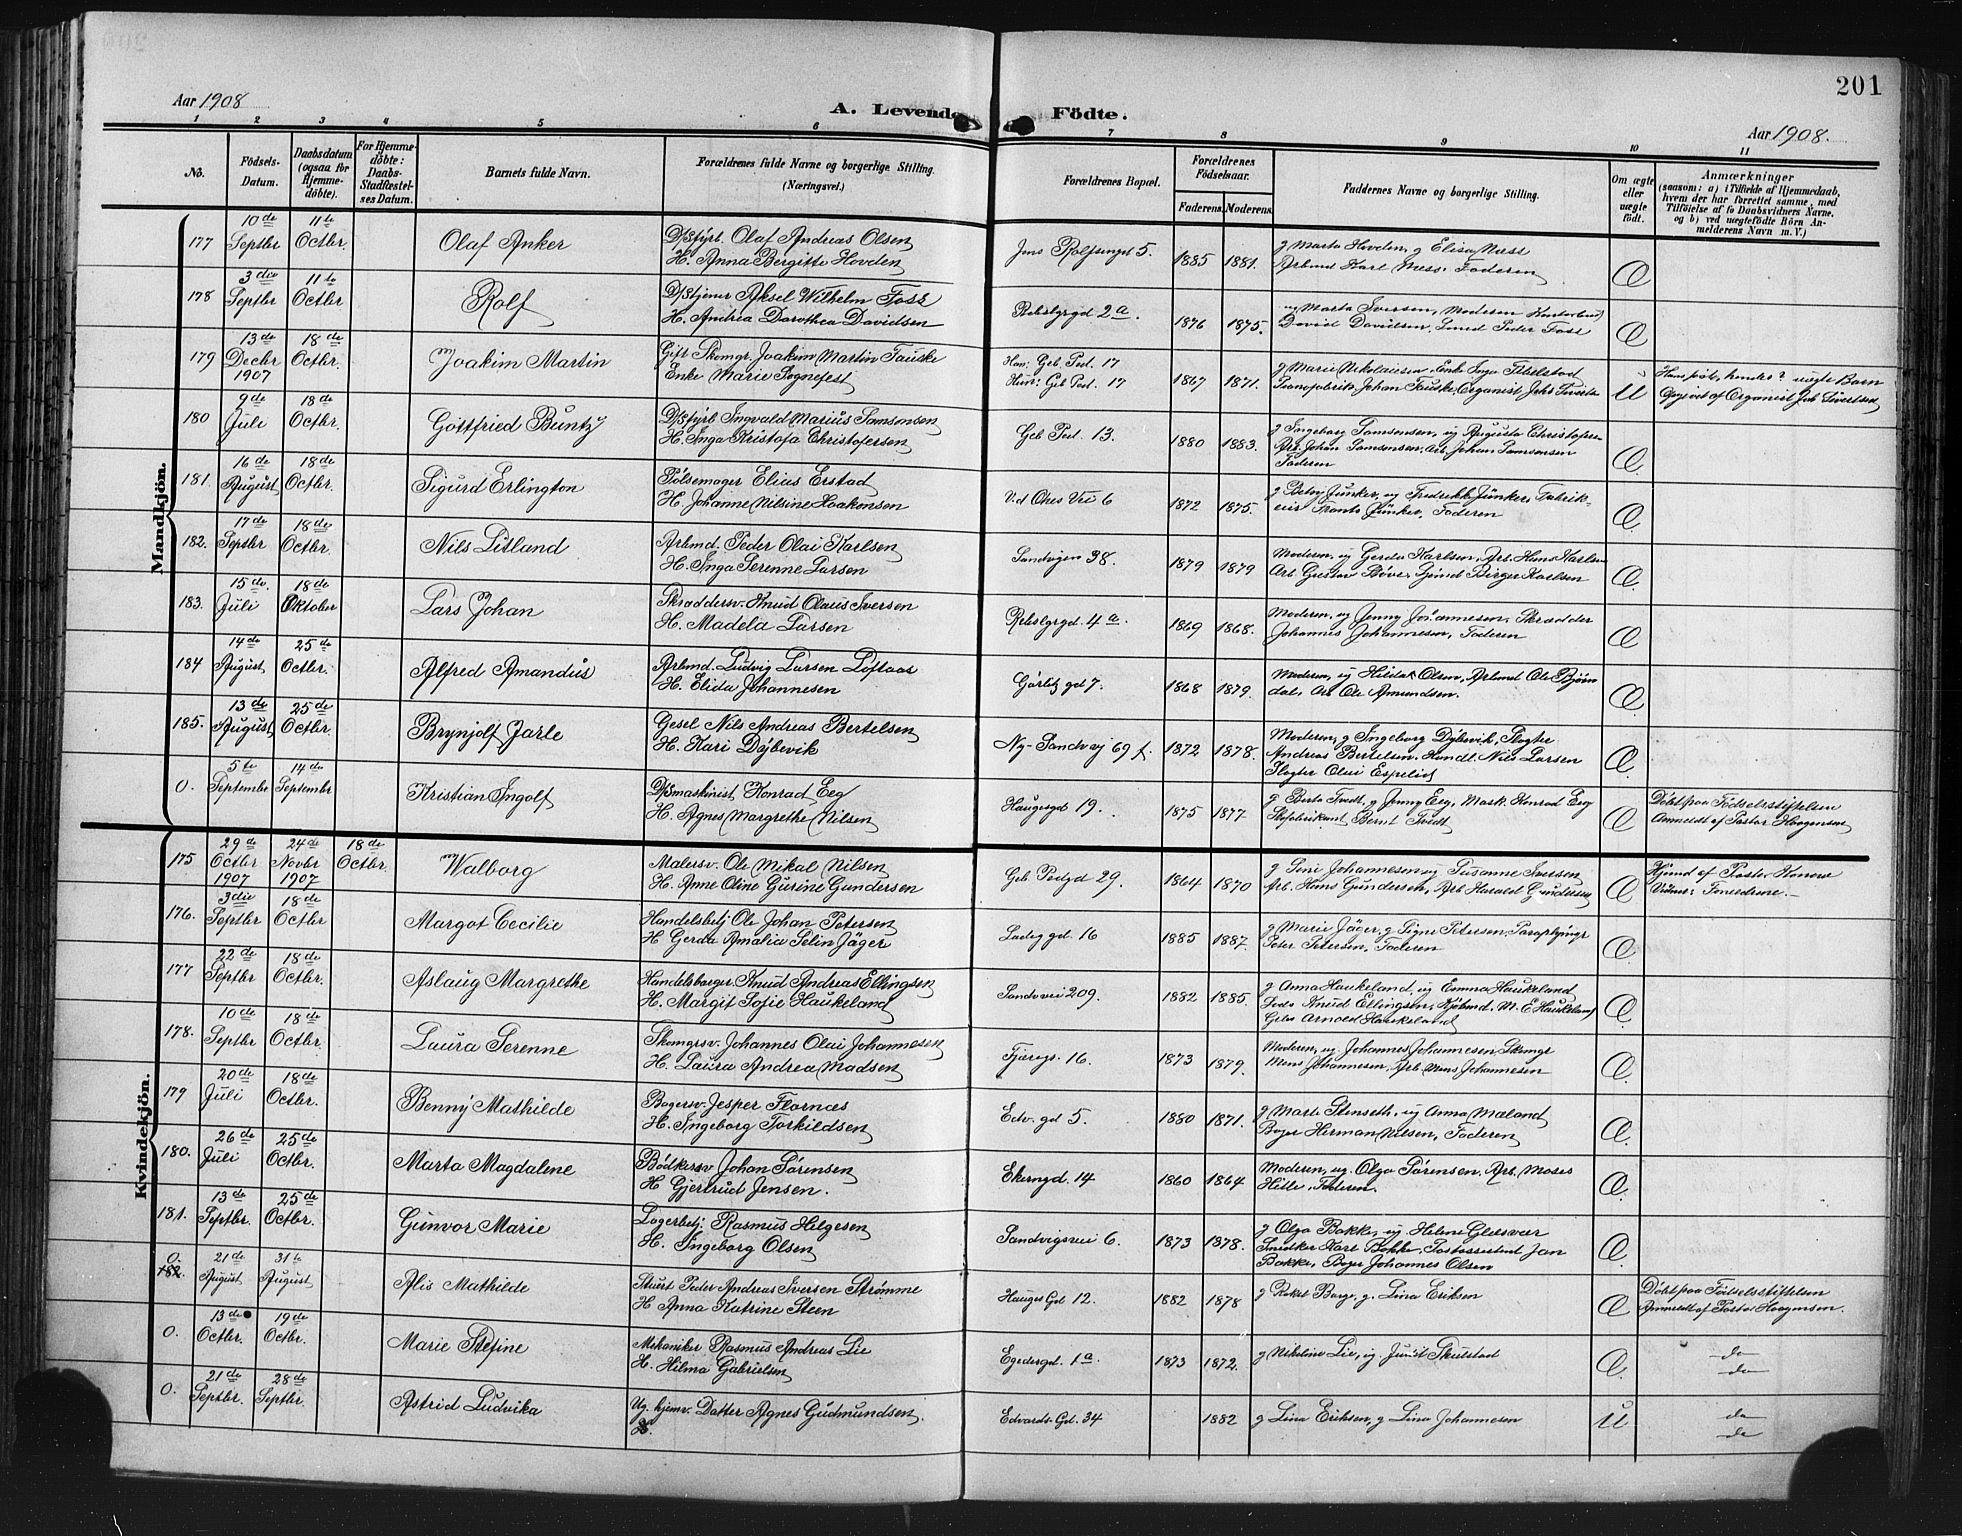 201
Aar 1908
A. Levende Födte.
Aar 1908.
1 2 3 4 5 6 7 8 9 10 11
No.
Födsels-Datum.
Daabsdatum (ogsaa for Hjemme-døbte).
For Hjemme-døbte: Daabs-Stadfæstel-ses Datum.
Barnets fulde Navn.
Forældrenes fulde Navne og borgerlige Stilling.
(Næringsvei.)
Forældrenes Bopæl.
Forældrenes Födselsaar.
Faderens. Moderens.
Faddernes Navne og borgerlige Stilling.
Om ægte eller uægte født.
Anmærkninger
(saasom: a) i Tilfælde af Hjemmedaab, hvem der har forrettet samme, med Tilföielse af to Daabsvidners Navne, og b) ved uægtefödte Börn Anmelderens Navn m. V.)
Mandkjön.
177 10de Septbr 11te Octbr. Olaf Anker
D/Sfyrb. Olaf Andreas Olsen
H. Anna Bergitte Hovden
Jens Rolfsengt 5. 1885 1881.
g Marta Hovden, g Elisa Næss
Arbmd Karl Næss. Faderen
Æ
178 3die Septbr 11te Octbr. Rolf
D/Stjener Aksel Wilhelm Foss
H. Andrea Dorothea Davidsen
Rebslgrgd 2a. 1876 1875.
ug Marta Iversen, Moderen
David Davidsen, Smed Peder Foss
Æ
179 13de Decbr 1907 18de Octbr. Joakim Martin
Gift Skomgr. Joakim Martin Tauske
Enke Marie Sognefest
Han: Geb Ped. 17
Hun: Geb Ped. 17
1867 1871.
g Marie Nikolaisen, Enke Inga Titlestad
Johan Tauske, Organist Johs Sivertsen
U
Hans første, hendes? uægte Barn
Opgivet af Organist Joh Sivertsen
180 9de Juli 18de Octbr. Gottfried Buntz
D/Sfyrb Ingvald Marius Samsonsen
H. Inga Kristofa Christofersen
Geb Ped. 13. 1880 1883.
g Ingeborg Samsonsen, ug Augusta Christofersen
Arb. Johan Samsonsen, Arb. Johan Samsonsen
Faderen
Æ
181. 16de August 18de Octbr. Sigurd Erlington
Pölsemager Elias Erstad
H. Johanne Nilsine Haakonsen
Ved Ches Vei 6 1872 1875.
g Betsy Junker, ug Fredrikke Junker, Fabrik-
eier Frants Junker, Faderen
Æ
182. 17de Septbr 18de Octbr. Nils Litland
Arbmd. Peder Olai Karlsen
H. Inga Serenne Larsen
Sandvigen 38. 1879 1879
Moderen, ug Gerda Karlsen, Arb. Hans Karlsen
Arb. Gustav Bøve, Sjømd Birger Karlsen
Æ
183. 15de. Juli 18de Oktober Lars Johan
Skræddersv. Knud Olaus Iversen
H. Madela Larsen
Rebslgrgd. 4a. 1869 1868.
Moderen, ug Jenny Johannesen, Skrædder
Johannes Johannesen, Faderen
Æ
184 14de August 25de Octbr. Alfred Amandus
Arbmd. Ludvig Larsen Loftaas
H. Elida Johannesen
Görbitz gd 7. 1868 1879.
Moderen, ug Hilda Olsen, Arbmd Ole Bjørn
dal, Arb Ole Amundsen.
Æ
185. 13de August 25de Octbr. Brynjolf Jarle
Gesel Nils Andreas Bertelsen
H. Kari Dybevik
Ny-Sandvej 69 f. 1872 1878.
Moderen, g Ingeborg Dybevik, Slagter
Andreas Bertelsen, Handl. Nils Larsen
Slagter Olai Espelid
Æ.
0. 5te Septembr 14de Septembr Kristian Ingolf
D/Smaskinist Konrad Eeg
H. Agnes Margrethe Nilsen
Haugegd 19. 1875 1877
g Berta Tvedt, g Jenny Eeg, Mask. Konrad Eeg
Skofabrikant Bernt Tvedt
Æ
Döbt paa Födselsstiftelsen
Anmeldt af Pastor Haagensen
Kvindekjön.
175 29de Octbr 1907 24de Novbr 1907 18de Octbr. Walborg
Malersv. Ole Mikal Nilsen
H. Anne Oline Gurine Gundersen
Geb Pedgd 29. 1864 1870
g Sene Johannesen ug Susanne Iversen
Arb. Hans Gundersen, Arb Harald Gundersen
Æ
Hjemd af Pastor Honoré
Vidner: Forældrene. -
176. 3die Septbr 18de Octbr Margot Cecilie
Handelsbetj Ole Johan Petersen
H Gerda Amalia Selin Jäger
Ladeg gd. 16 1885 1887.
g Marie Jäger, g Signe Petersen, Paraplymgr
Peter Petersen, Faderen
Æ.
177 22de Septbr 18de Octbr. Aslaug Margrethe
Handelsborger Knud Andreas Ellingsen
H. Margit Sofie Haukeland
Sandvvei 209. 1882 1885.
g Anna Haukeland, ug Emma Haukeland
Knud Ellingsen, Kjøbmd. M. E Haukeland
Arnold Haukeland
Æ.
178. 10de Septbr 18de Octbr. Laura Serenne
Skomgrsv. Johannes Olai Johannesen
H. Laura Andrea Madsen
Fjæregr. 16. 1873 1879.
Moderen, ug. Johannes Johannesen, Skomgr
Mons Johannesen, Arb. Mons Johannesen
Æ.
179 20de Juli 18de Octbr. Benny Mathilde
Bagersv. Jesper Flornæs
H. Ingeborg Torkildsen
Edv. gd 5. 1880 1871.
g Marte Stenseth, ug Anna Maland
Bager Herman Nilsen, Faderen
Æ.
180. 26de Juli 25de Octbr. Marta Magdalene
Bødkersv Johan Sørensen
H Gjertrud Jensen.
Ekerngd. 14 1860 1864
Moderen, ug. Olga Sørensen, Arb. Moses
Hille, Faderen.
Æ.
181. 13de Septbr 25de Octbr. Gunvor Marie
Lagerbetj. Rasmus Helgesen
H. Ingeborg Olsen
Sandvigsvei 6. 1873 1878.
g Olga Bakke, ug Helene Glesvær
Snedker Karl Bakke, Postassistent Jan
Bakke, Bager Johannes Olsen
Æ.
0. 182. 21de August 31te August Alis Mathilde
Stuert Peder Andreas Iversen Strømme
H Anna Katrine Steen
Hauges Gd. 12. 1882 1878
g Rakel Borge, g. Lina Eriksen
Æ
Döbt paa Födselsstiftelsen
Anmeldt af Pastor Haagensen.
0. 13de Octbr. 19de Octbr. Marie Stefine
Mekaniker Rasmus Andreas Lie
H. Hilma Gabrielsen
Egedesgd. 1a. 1873 1872.
g Nikoline Lie, ug. Judit Skulstad
Æ.
do
do
0. 21de Septbr. 28de Septbr. Astrid Ludvika
Ug. hjemv. Datter Agnes Gudmundsen
Edvards Gd. 34 1882
g Lina Eriksen, g Lina Johannesen
U
do
do